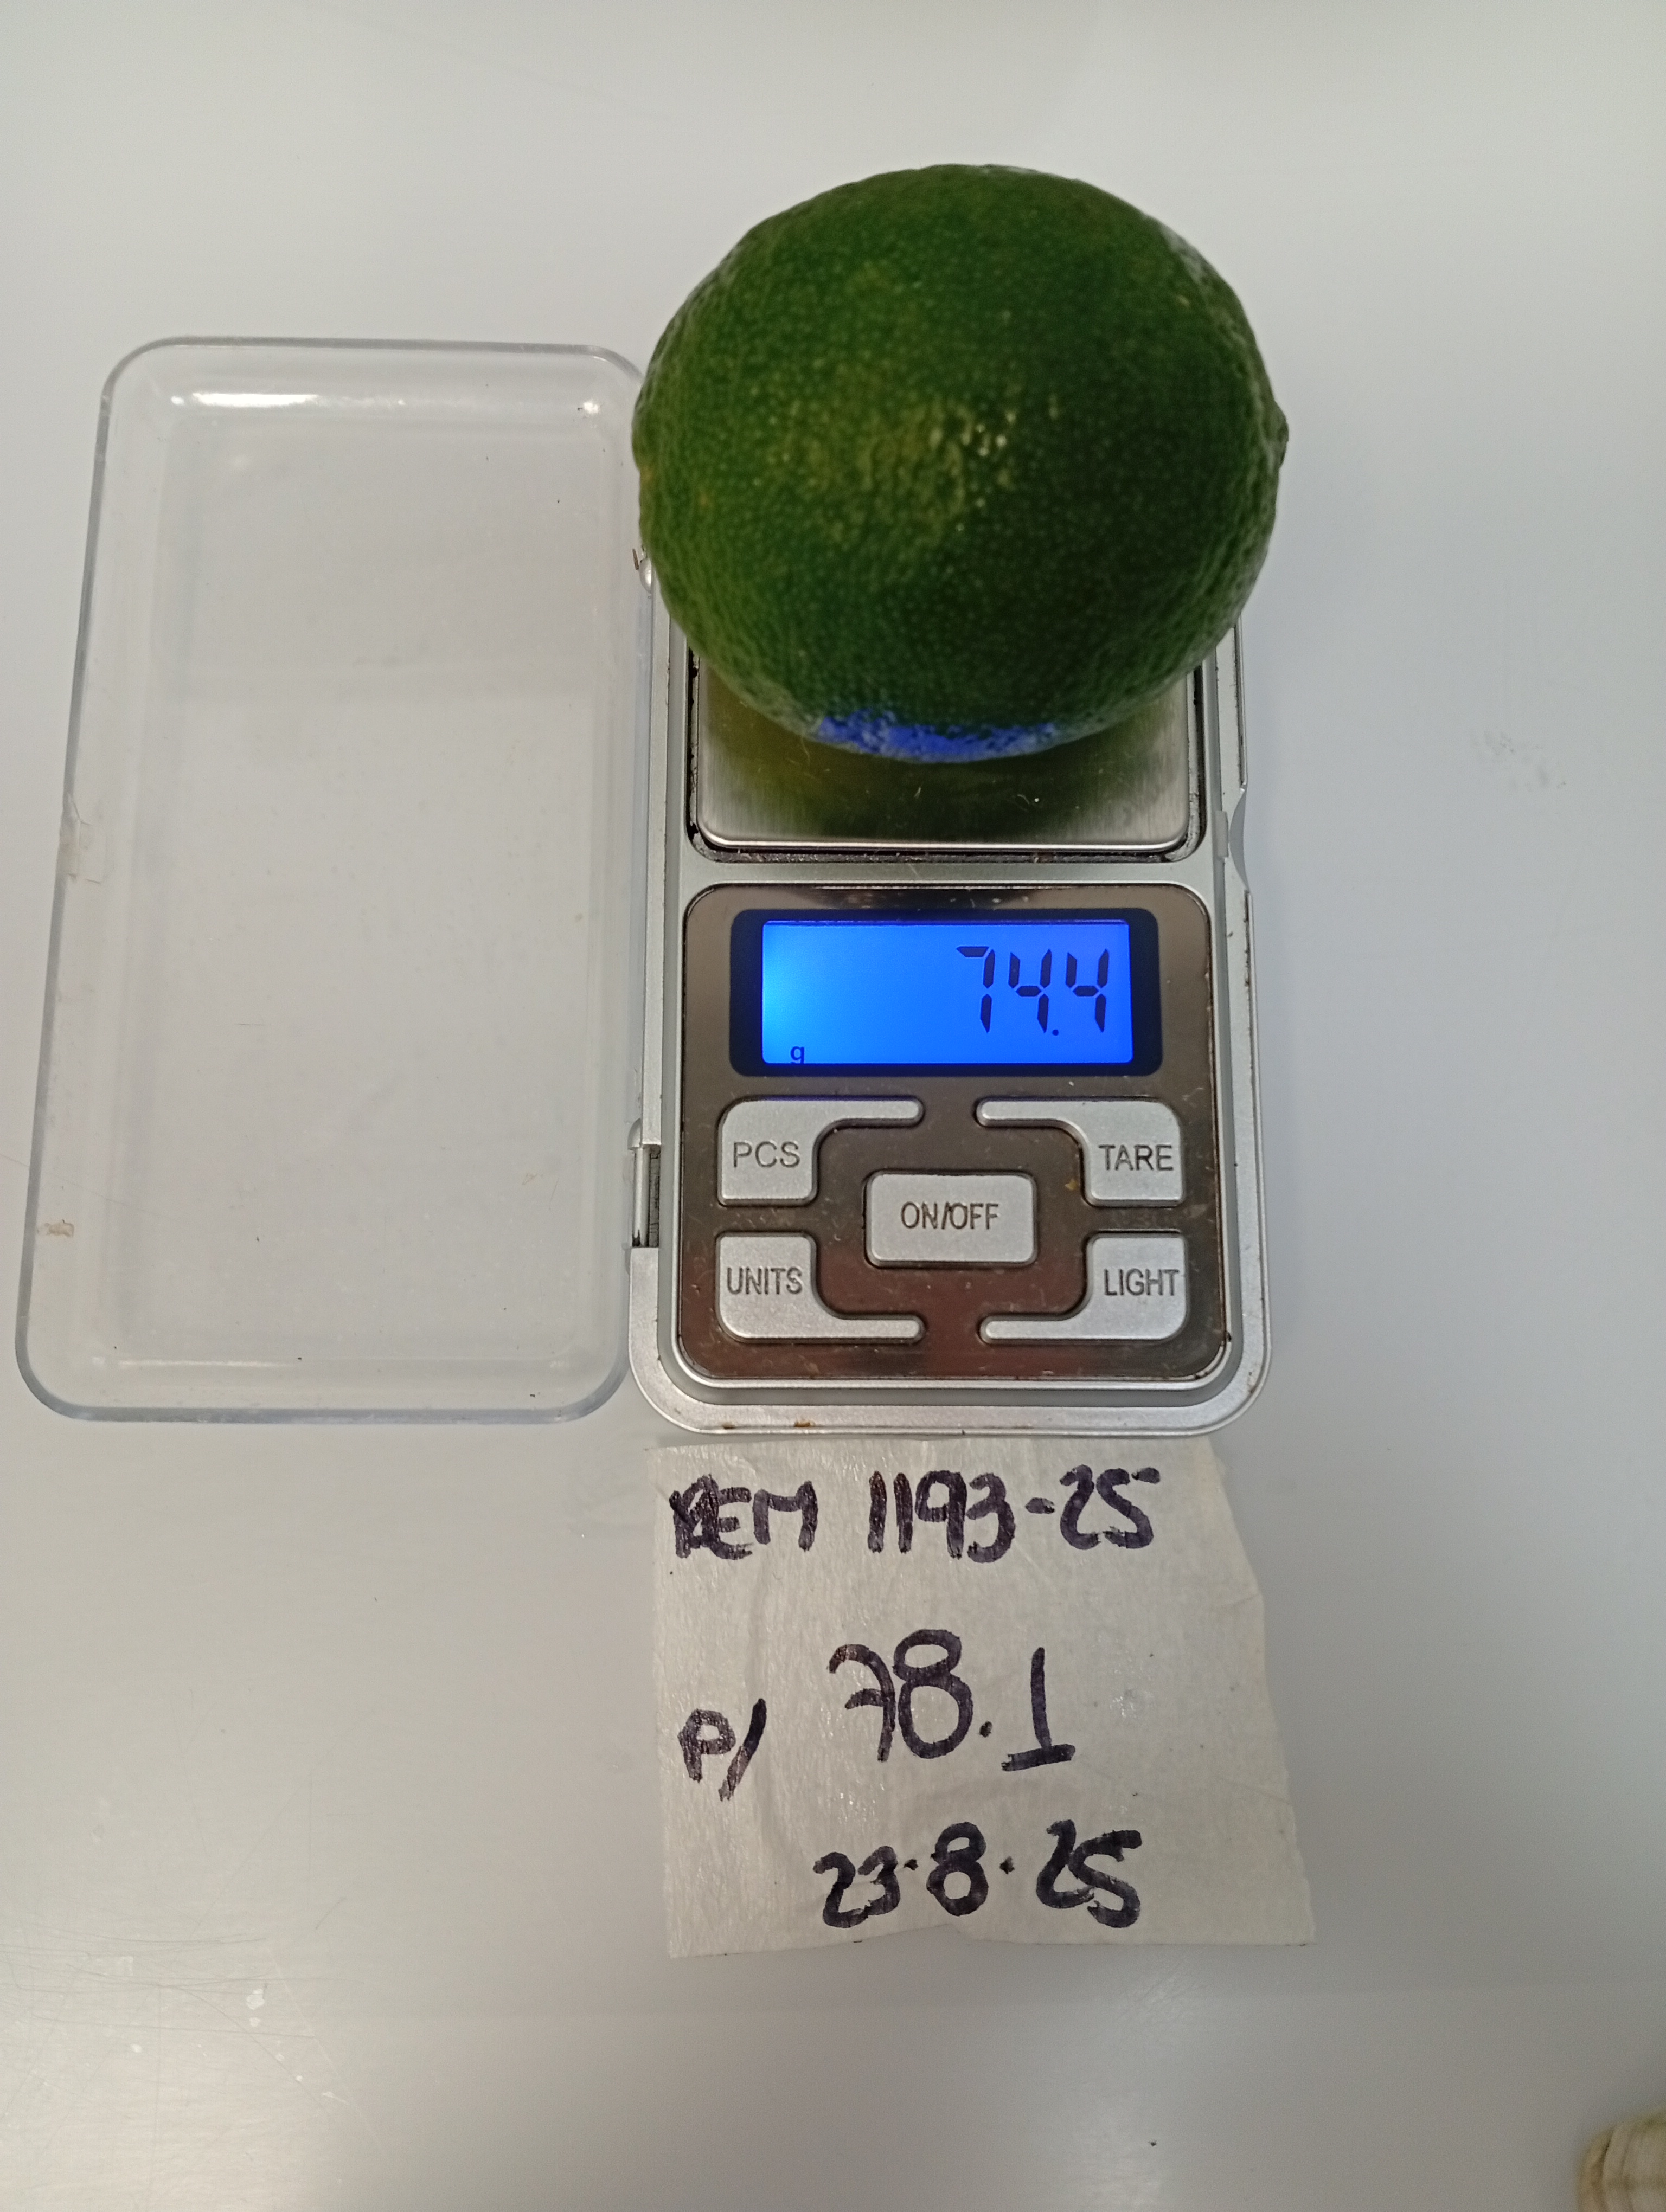 74.4
g
PCS
TARE
ON/OFF
UNITS
LIGHT
REM 1193-25
P/ 78.1
23.8.25